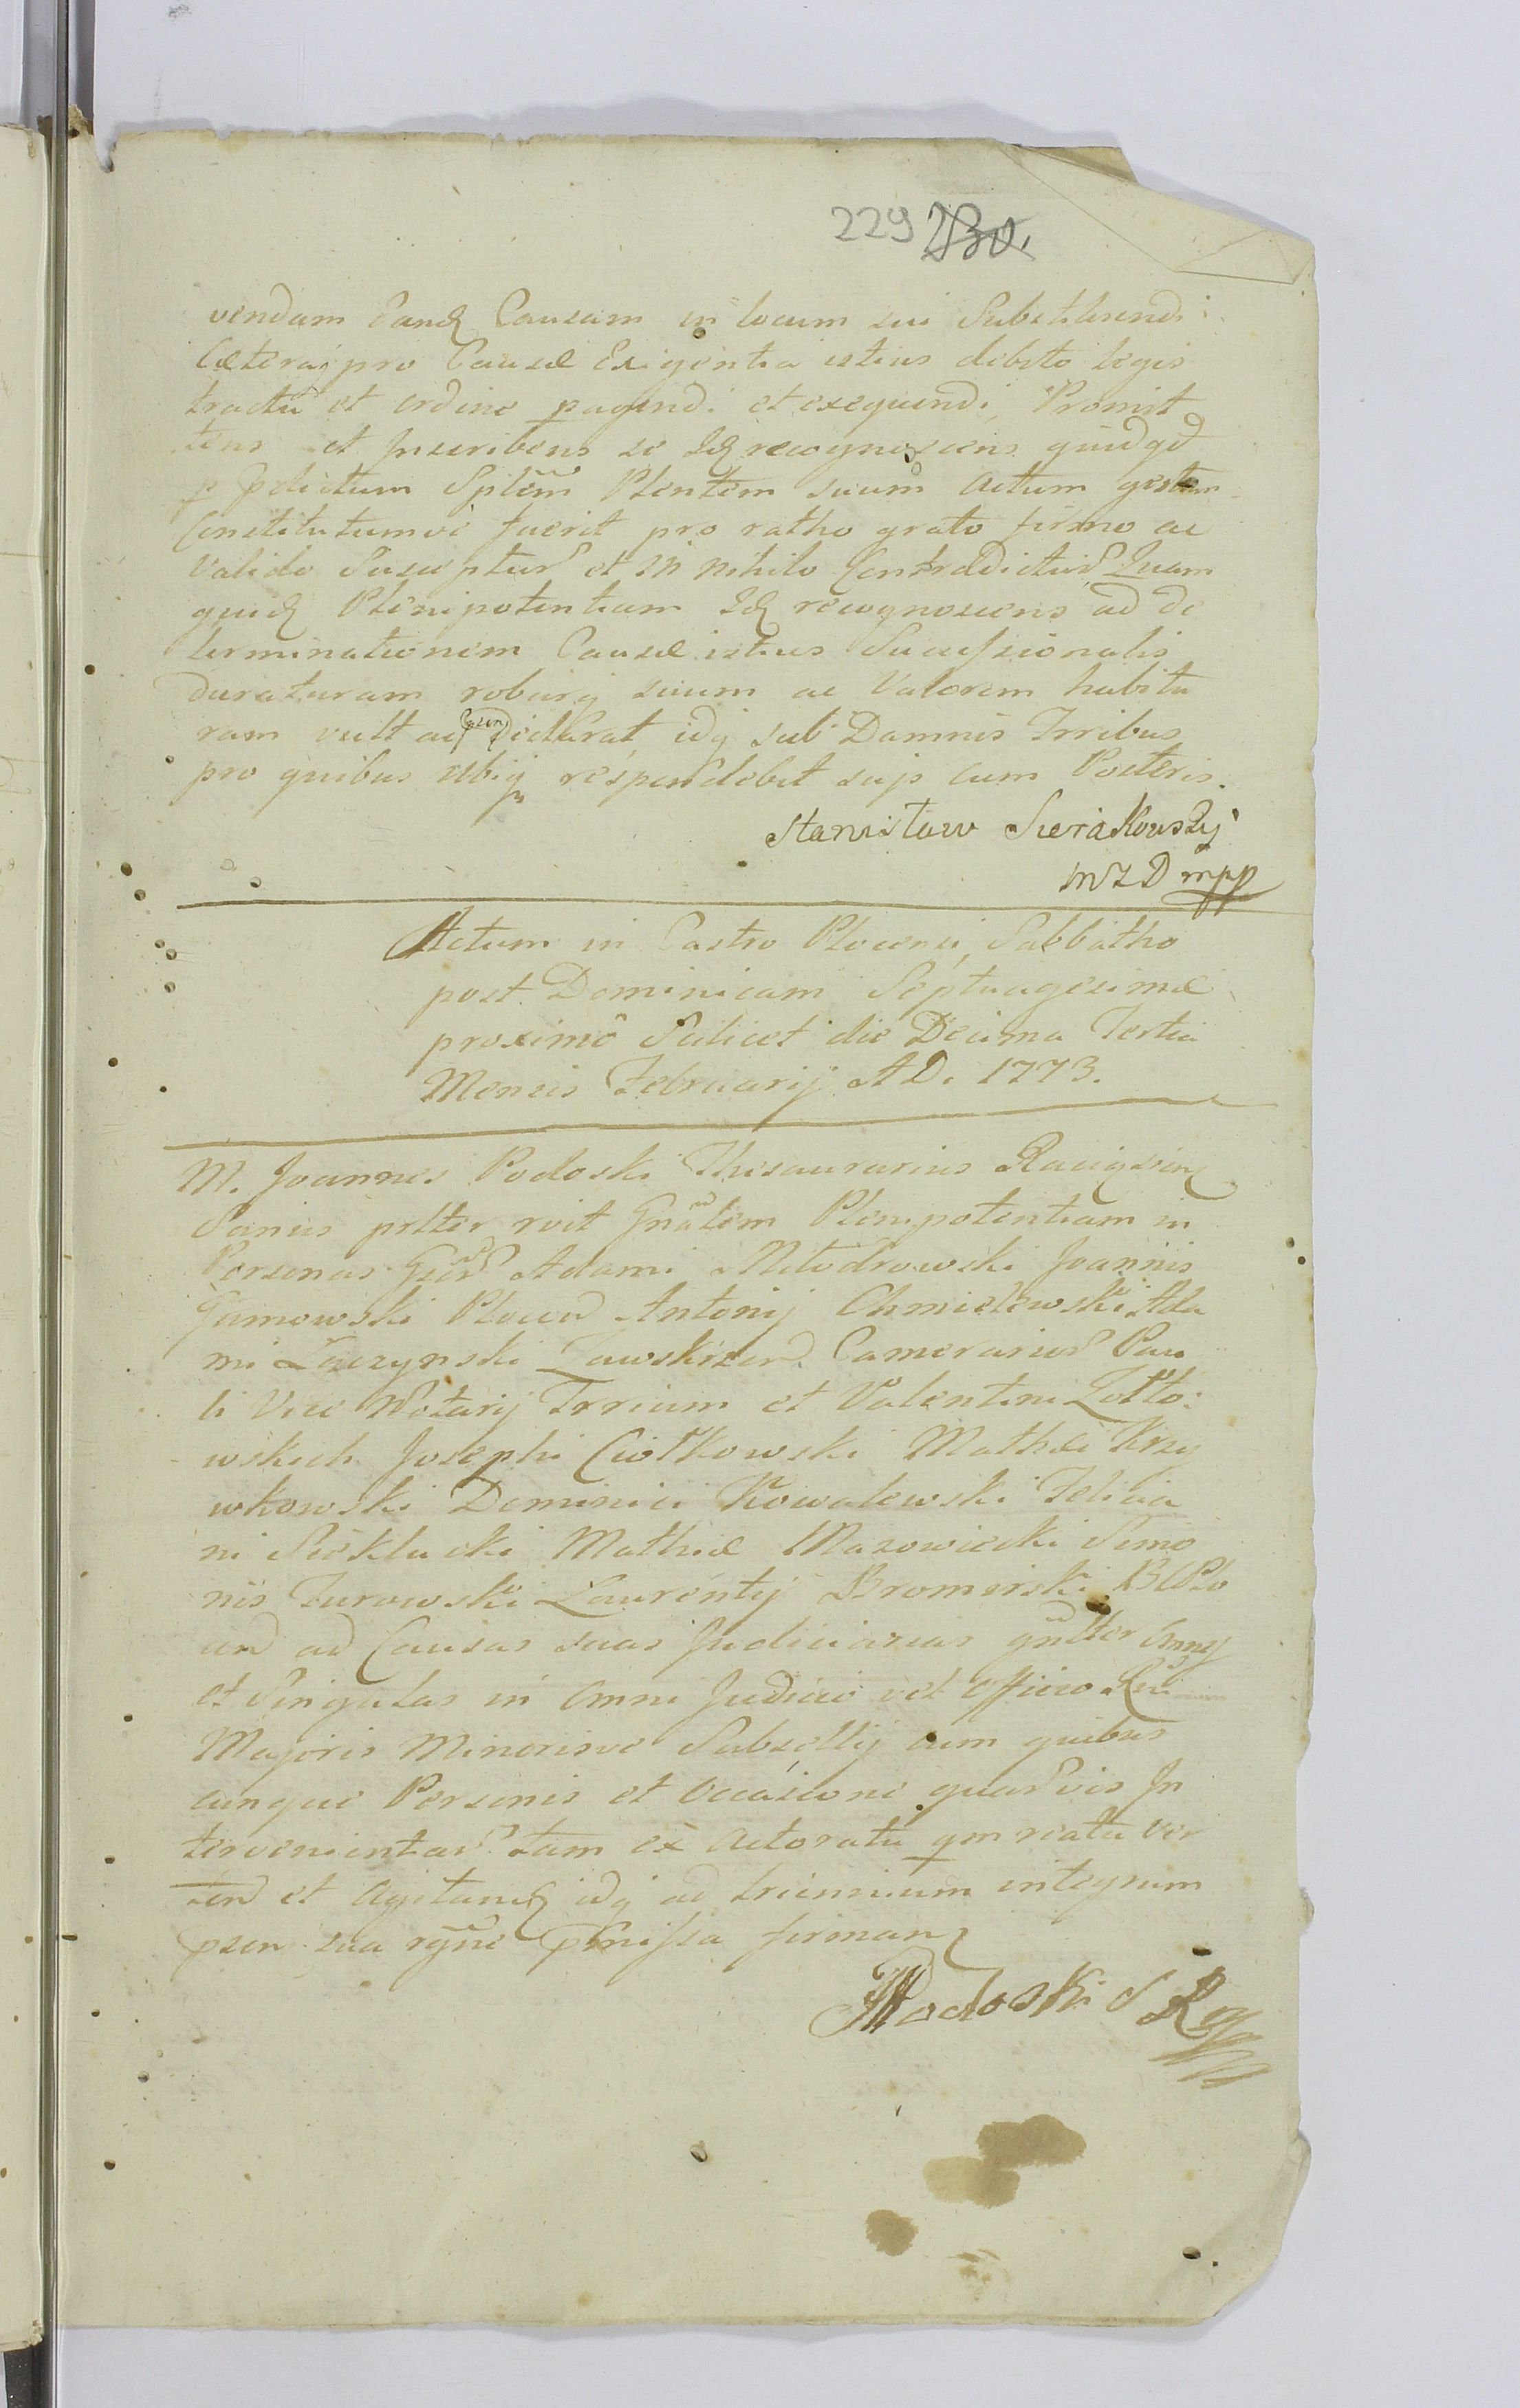 229 230.
vendam eand Causam in locum sui Substituendi
Cæteraq pro Causæ Exigentia istius debito legis
tractu et ordine pagendi et exequendi, Promit
tens et Inscribens se Idq recognoscens quidqd
p pdictum Splem Plentem suum actum gestum
Constitutumve fuerit pro ratho grato firmo ac
Valido Susceptur et in nihilo Contradictur Quam
quid Plenipotentiam Idq recognoscens ad de
terminationem Causæ istius Successionalis
duraturam roburq suum ac Valorem habitu
ram vult ac declarat, idq sub Damnis Trribus
pro quibus ubiq respondebit suis cum Posteris.
Stanisław Sierakowsky
WZD mpp
Actum in Castro Plocensi, Sabbatho
post Dominicam Septuagesimæ
proximo Scilicet die Decima Tertia
Mensis Februarij AD. 1773.
M. Joannes Podoski Thesaurarius Raciązen
Sanus pltter rvit Gnalem Plenipotentiam in
Personas Gsor Adami Młodrowski Joannis
Gumowski Plocen Antonij Chmielewski Ada
mi Łaczynski Zawskrzen Camerarior Pau
li Vice Notarij Trrium et Valentini Zołto:
wskich Josephi Ciołkowski Mathæi Krzy
wkowski Dominici Kowalewski Felicia
ni Sieklucki Mathiæ Mazowiecki Simo
nis Turowski Laurentij Bromirski B C Plo
cen ad Causas suas Judiciarias gnltter omnes
et Singulas in omni Judicio vel officio Rni
Majoris Minorisve Subsellij cum quibus
cunque Personis et occasione quarvis In
tervenientar tam ex actoratu qm reatu ver
ten et agitand idq ad triennium integrum
psen sua rgne pmissa firman
JPodoski S R mpp